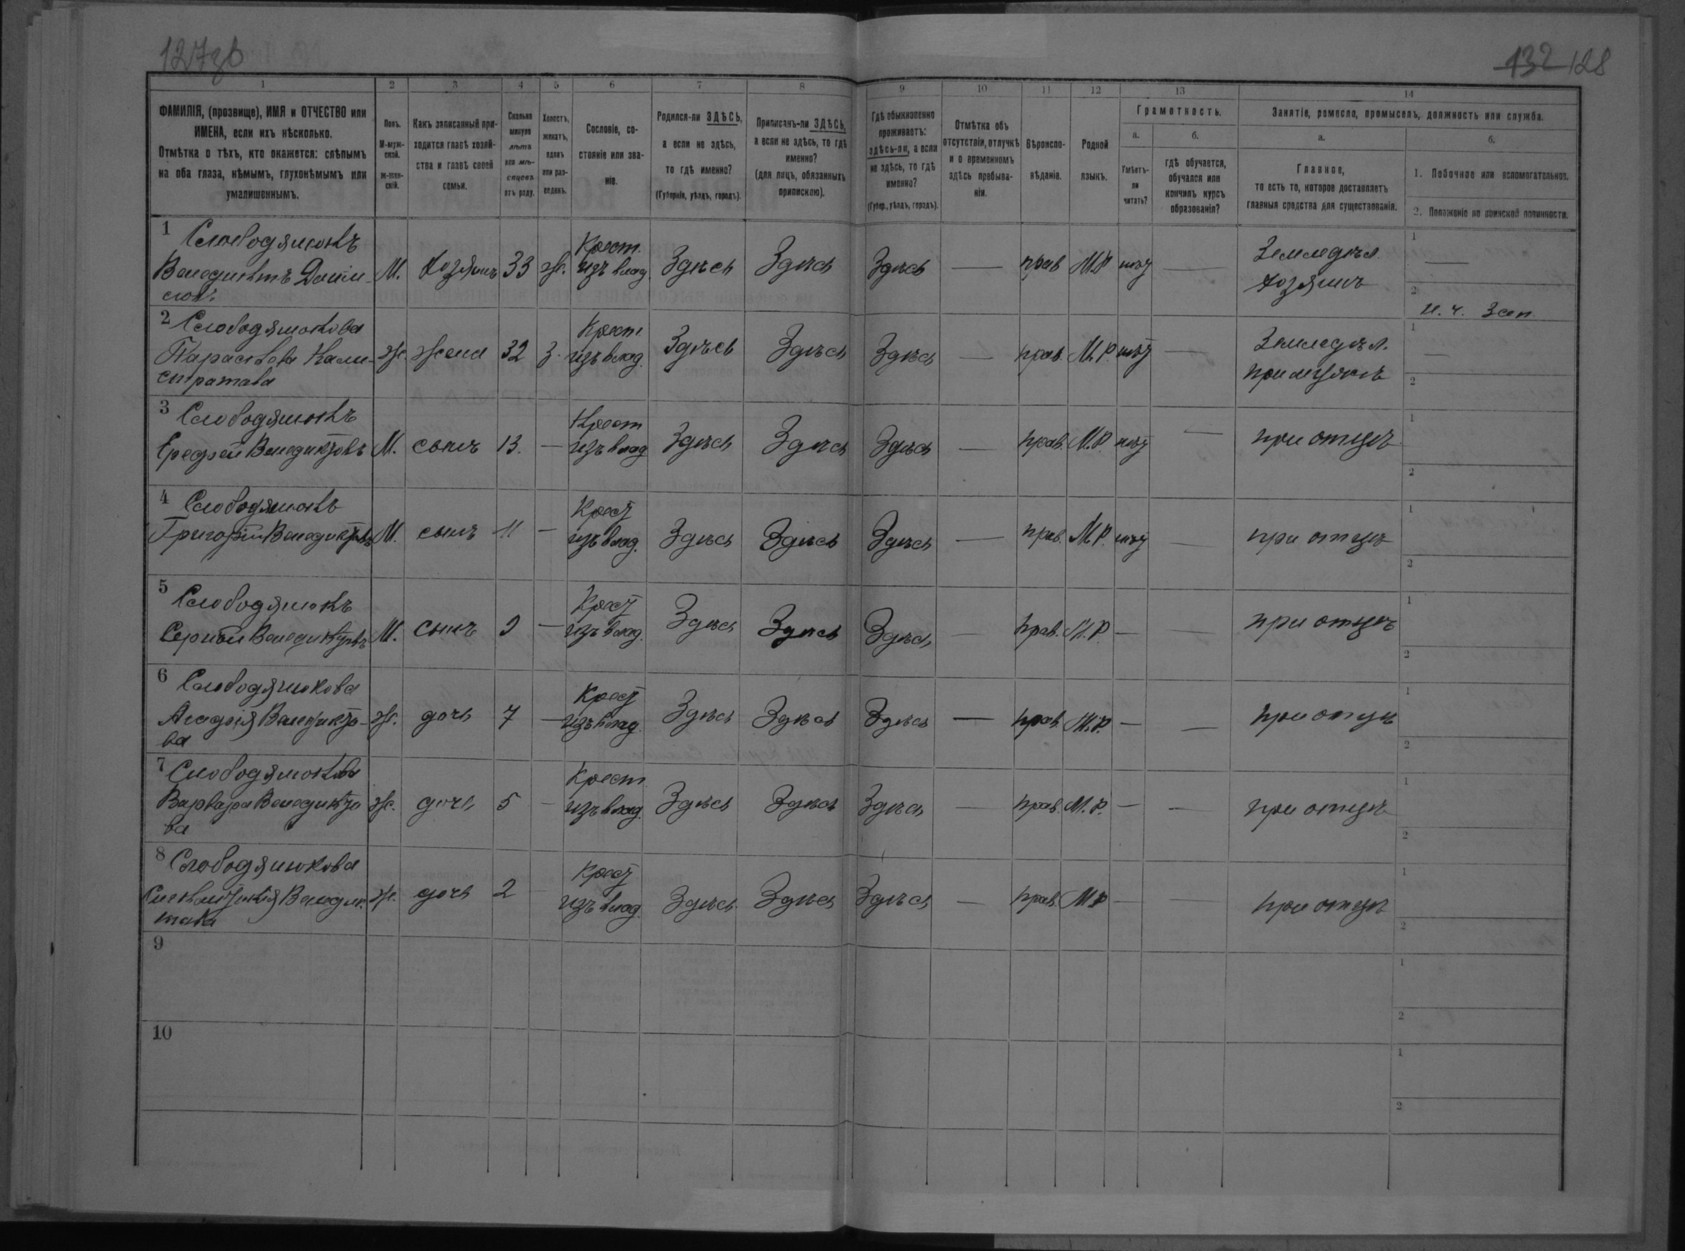 127зв
132 128
1 2 3 4 5 6 7 8 9 10 11 12 13 14
ФАМИЛІЯ, (прозвище), ИМЯ и ОТЧЕСТВО или
ИМЕНА, если ихъ нѣсколько.
Отмѣтка о тѣхъ, кто окажется: слѣпымъ
на оба глаза, нѣмымъ, глухонѣмымъ или
умалишеннымъ.
Полъ.
М-муж-
ской.
Ж-жен-
скій.
Какъ записанный при-
ходится главѣ хозяй-
ства и главѣ своей
семьи.
Сколько
минуло
лѣтъ
или мѣ-
сяцевъ
отъ роду.
Холостъ,
женатъ,
вдовъ
или раз-
веденъ.
Сословіе, со-
стояніе или зва-
ніе.
Родился-ли ЗДѢСЬ,
а если не здѣсь,
то гдѣ именно?
(Губернія, уѣздъ, городъ).
Приписанъ-ли ЗДѢСЬ,
а если не здѣсь, то гдѣ
именно?
(для лицъ, обязанныхъ
припискою).
Гдѣ обыкновенно
проживаетъ:
здѣсь-ли, а если
не здѣсь, то гдѣ
именно?
(Губер., уѣздъ, городъ).
Отмѣтка объ
отсутствіи, отлучкѣ
и о временномъ
здѣсь пребыва-
ніи.
Вѣроиспо-
вѣданіе.
Родной
языкъ.
Грамотность.
а.
Умѣетъ-
ли
читать?
б.
гдѣ обучается,
обучался или
кончилъ курсъ
образованія?
Занятіе, ремесло, промыселъ, должность или служба.
а.
Главное,
то есть то, которое доставляетъ
главныя средства для существованія.
б.
1. Побочное или вспомогательное.
2. Положеніе по воинской повинности.
1 Слободянюкъ
Венедиктъ Данил-
овъ М. Хозяинъ 33 ж. Крест. изъ влад. Здѣсь Здѣсь Здѣсь — прав М.Р нѣт — Земледѣл. хозяинъ 1 —
2 и. ч. Зап
2 Слободянюкова
Параскева Кали-
стратова ж. жена 32 з. Крест изъ влад. Здѣсь Здѣсь Здѣсь — прав. М.Р. нѣт — Земледѣл. при мужѣ 1 —
2
3 Слободянюкъ
Ерофей Венедиктовъ М. сынъ 13. — Крест изъ влад Здѣсь Здѣсь Здѣсь — прав. М.Р. нѣт — при отцѣ 1
2
4 Слободянюкъ
Григорій Венедиктовъ М. сынъ 11 — Крест изъ влад. Здѣсь Здѣсь Здѣсь — прав. М.Р. нѣт — при отцѣ 1
2
5 Слободянюкъ
Сергѣй Венедиктовъ М. сынъ 9 — Крест изъ влад. Здѣсь Здѣсь Здѣсь прав. М.Р. — — при отцѣ 1
2
6 Слободянюкова
Агафія Венедикто-
ва ж. дочь 7 — Крест изъ влад. Здѣсь Здѣсь Здѣсь — прав М.Р. — — при отцѣ 1
2
7 Слободянюкова
Варвара Венедикто
ва ж. дочь 5 — Крест изъ влад. Здѣсь Здѣсь Здѣсь — прав. М.Р. — — при отцѣ 1
2
8 Слободянюкова
Венедик-
това ж. дочь 2 — Крест изъ влад. Здѣсь Здѣсь Здѣсь — прав М.Р — — при отцѣ 1
2
9 1
2
10 1
2